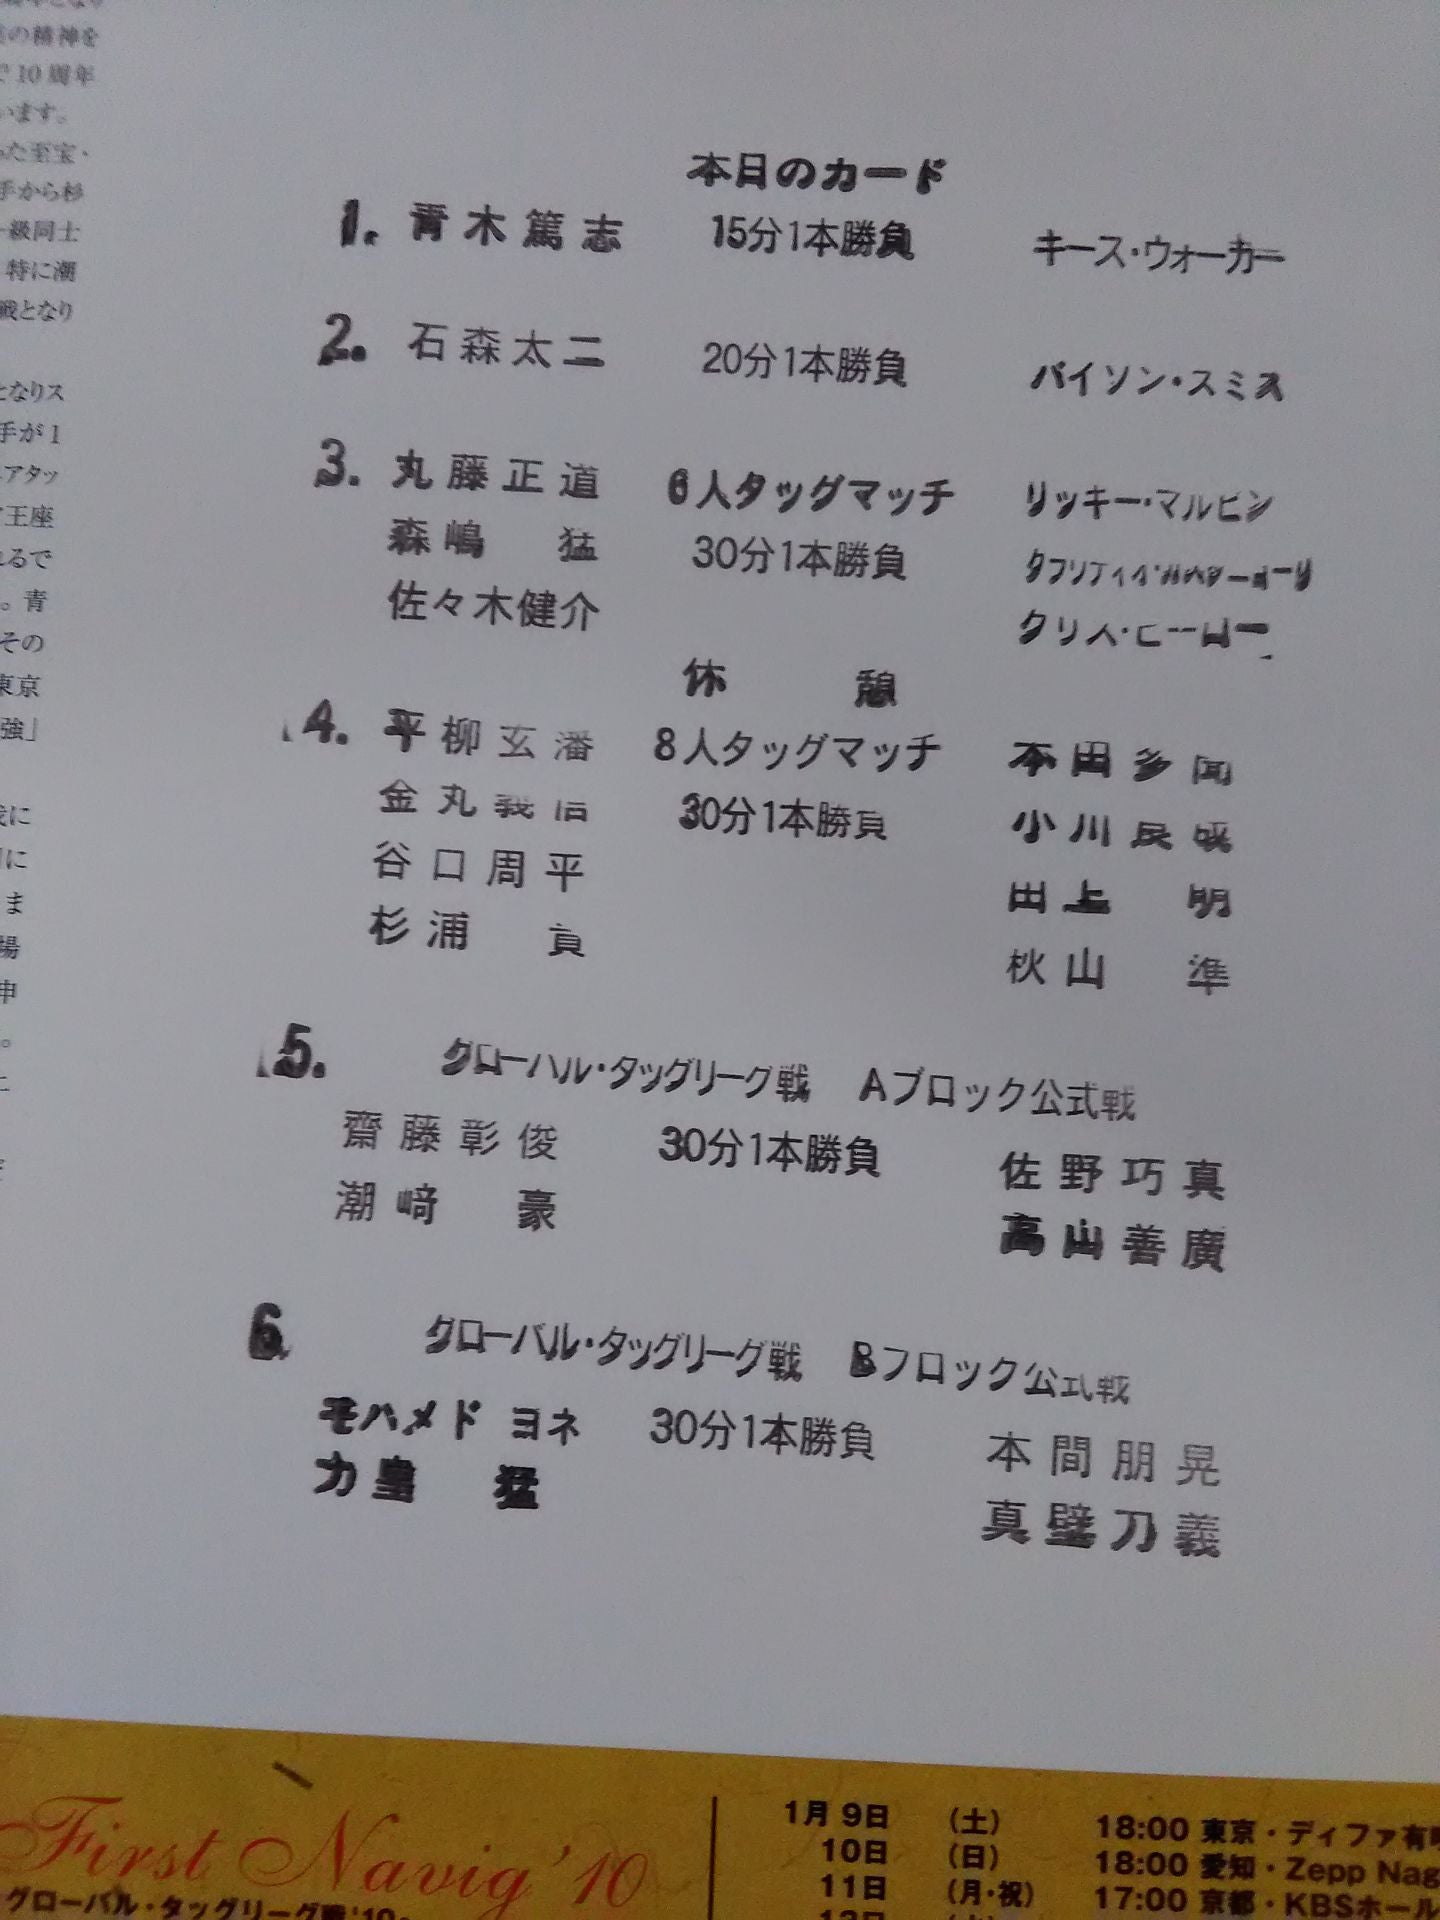 の精神を
10周年
います。
た至宝・
手から杉
級同士
特に潮
戦となり
となりス
手が1
アタッ
王座
るで
。青
その
東京
強」
に
に
ま
場
申
。
本日のカード
1. 青木篤志 15分1本勝負 キース・ウォーカー
2. 石森太二 20分1本勝負 バイソン・スミス
3. 丸藤正道 6人タッグマッチ リッキー・マルビン
森嶋 猛 30分1本勝負
佐々木健介 クリス・ヒーロー
休 憩
4. 平柳玄藩 8人タッグマッチ 本田多聞
金丸義信 30分1本勝負 小川良成
谷口周平 田上 明
杉浦 貴 秋山 準
5. グローバル・タッグリーグ戦 Aブロック公式戦
齋藤彰俊 30分1本勝負 佐野巧真
潮﨑 豪 高山善廣
6 グローバル・タッグリーグ戦 Bブロック公式戦
モハメド ヨネ 30分1本勝負 本間朋晃
力皇 猛 真壁刀義
First Navig '10
グローバル・タッグリーグ戦'10
1月9日 (土) 18:00 東京・ディファ有明
10日 (日) 18:00 愛知・Zepp Nag
11日 (月・祝) 17:00 京都・KBSホール